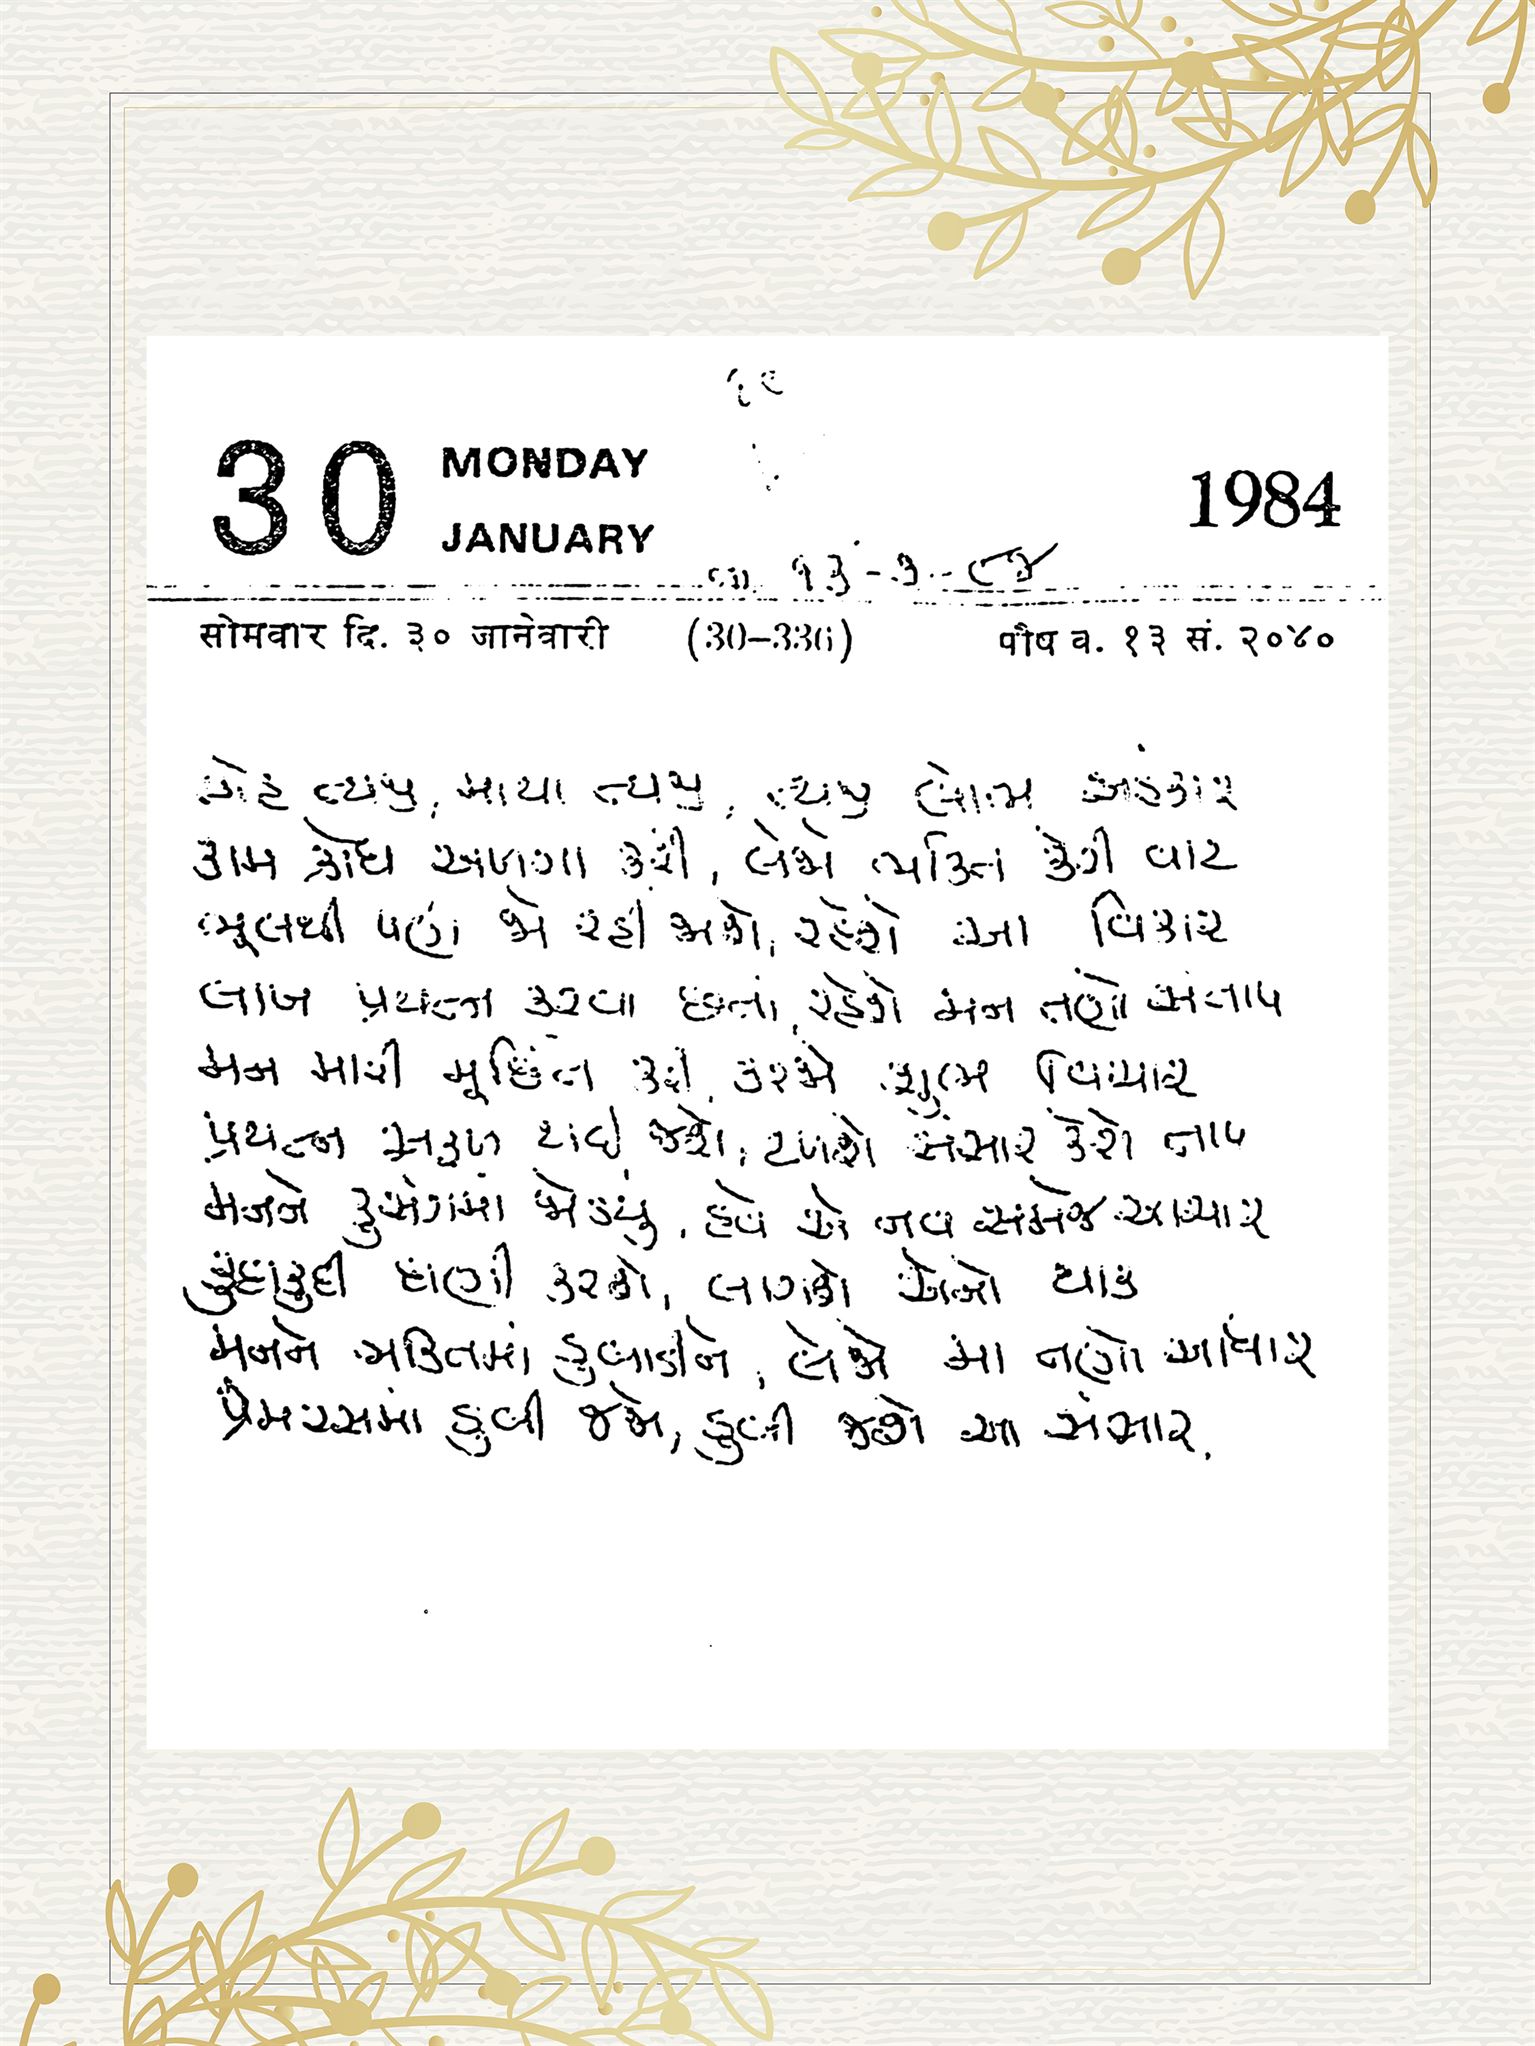 ૬૯
30 MONDAY
JANUARY
1984
તા. ૧૩-૩-૮૪
सोमवार दि. ३० जानेवारी (30–336) पौष व. १३ सं. २०४०
મોહ ત્યજ્યુ, માયા ત્યજ્યુ, ત્યજ્યુ લોભ અહંકાર
કામ ક્રોધ અળગા કરી, લેજે ભક્તિ કેરી વાટ
ભૂલથી પણ જો રહી જાશે, રહેશે આ વિકાર
લાખ પ્રયત્ન કરવા છતાં, રહેશે મન તણો સંતાપ
મન મારી મૂર્છિત કરી, કરજે શુભ વિચાર
પ્રયત્ન સફળ થઈ જાશે, ટળશે સંસાર કેરો તાપ
મનને કુસંગમાં જોડ્યું, હવે એ નવ સમજે આચાર
કુદાકુદી ઘણી કરશે, લાગશે એનો થાક
મનને ભક્તિમાં ડુબાડીને, લેજે મા તણો આધાર
પ્રેમરસમાં ડુબી જજે, ડુબી જાશે આ સંસાર.